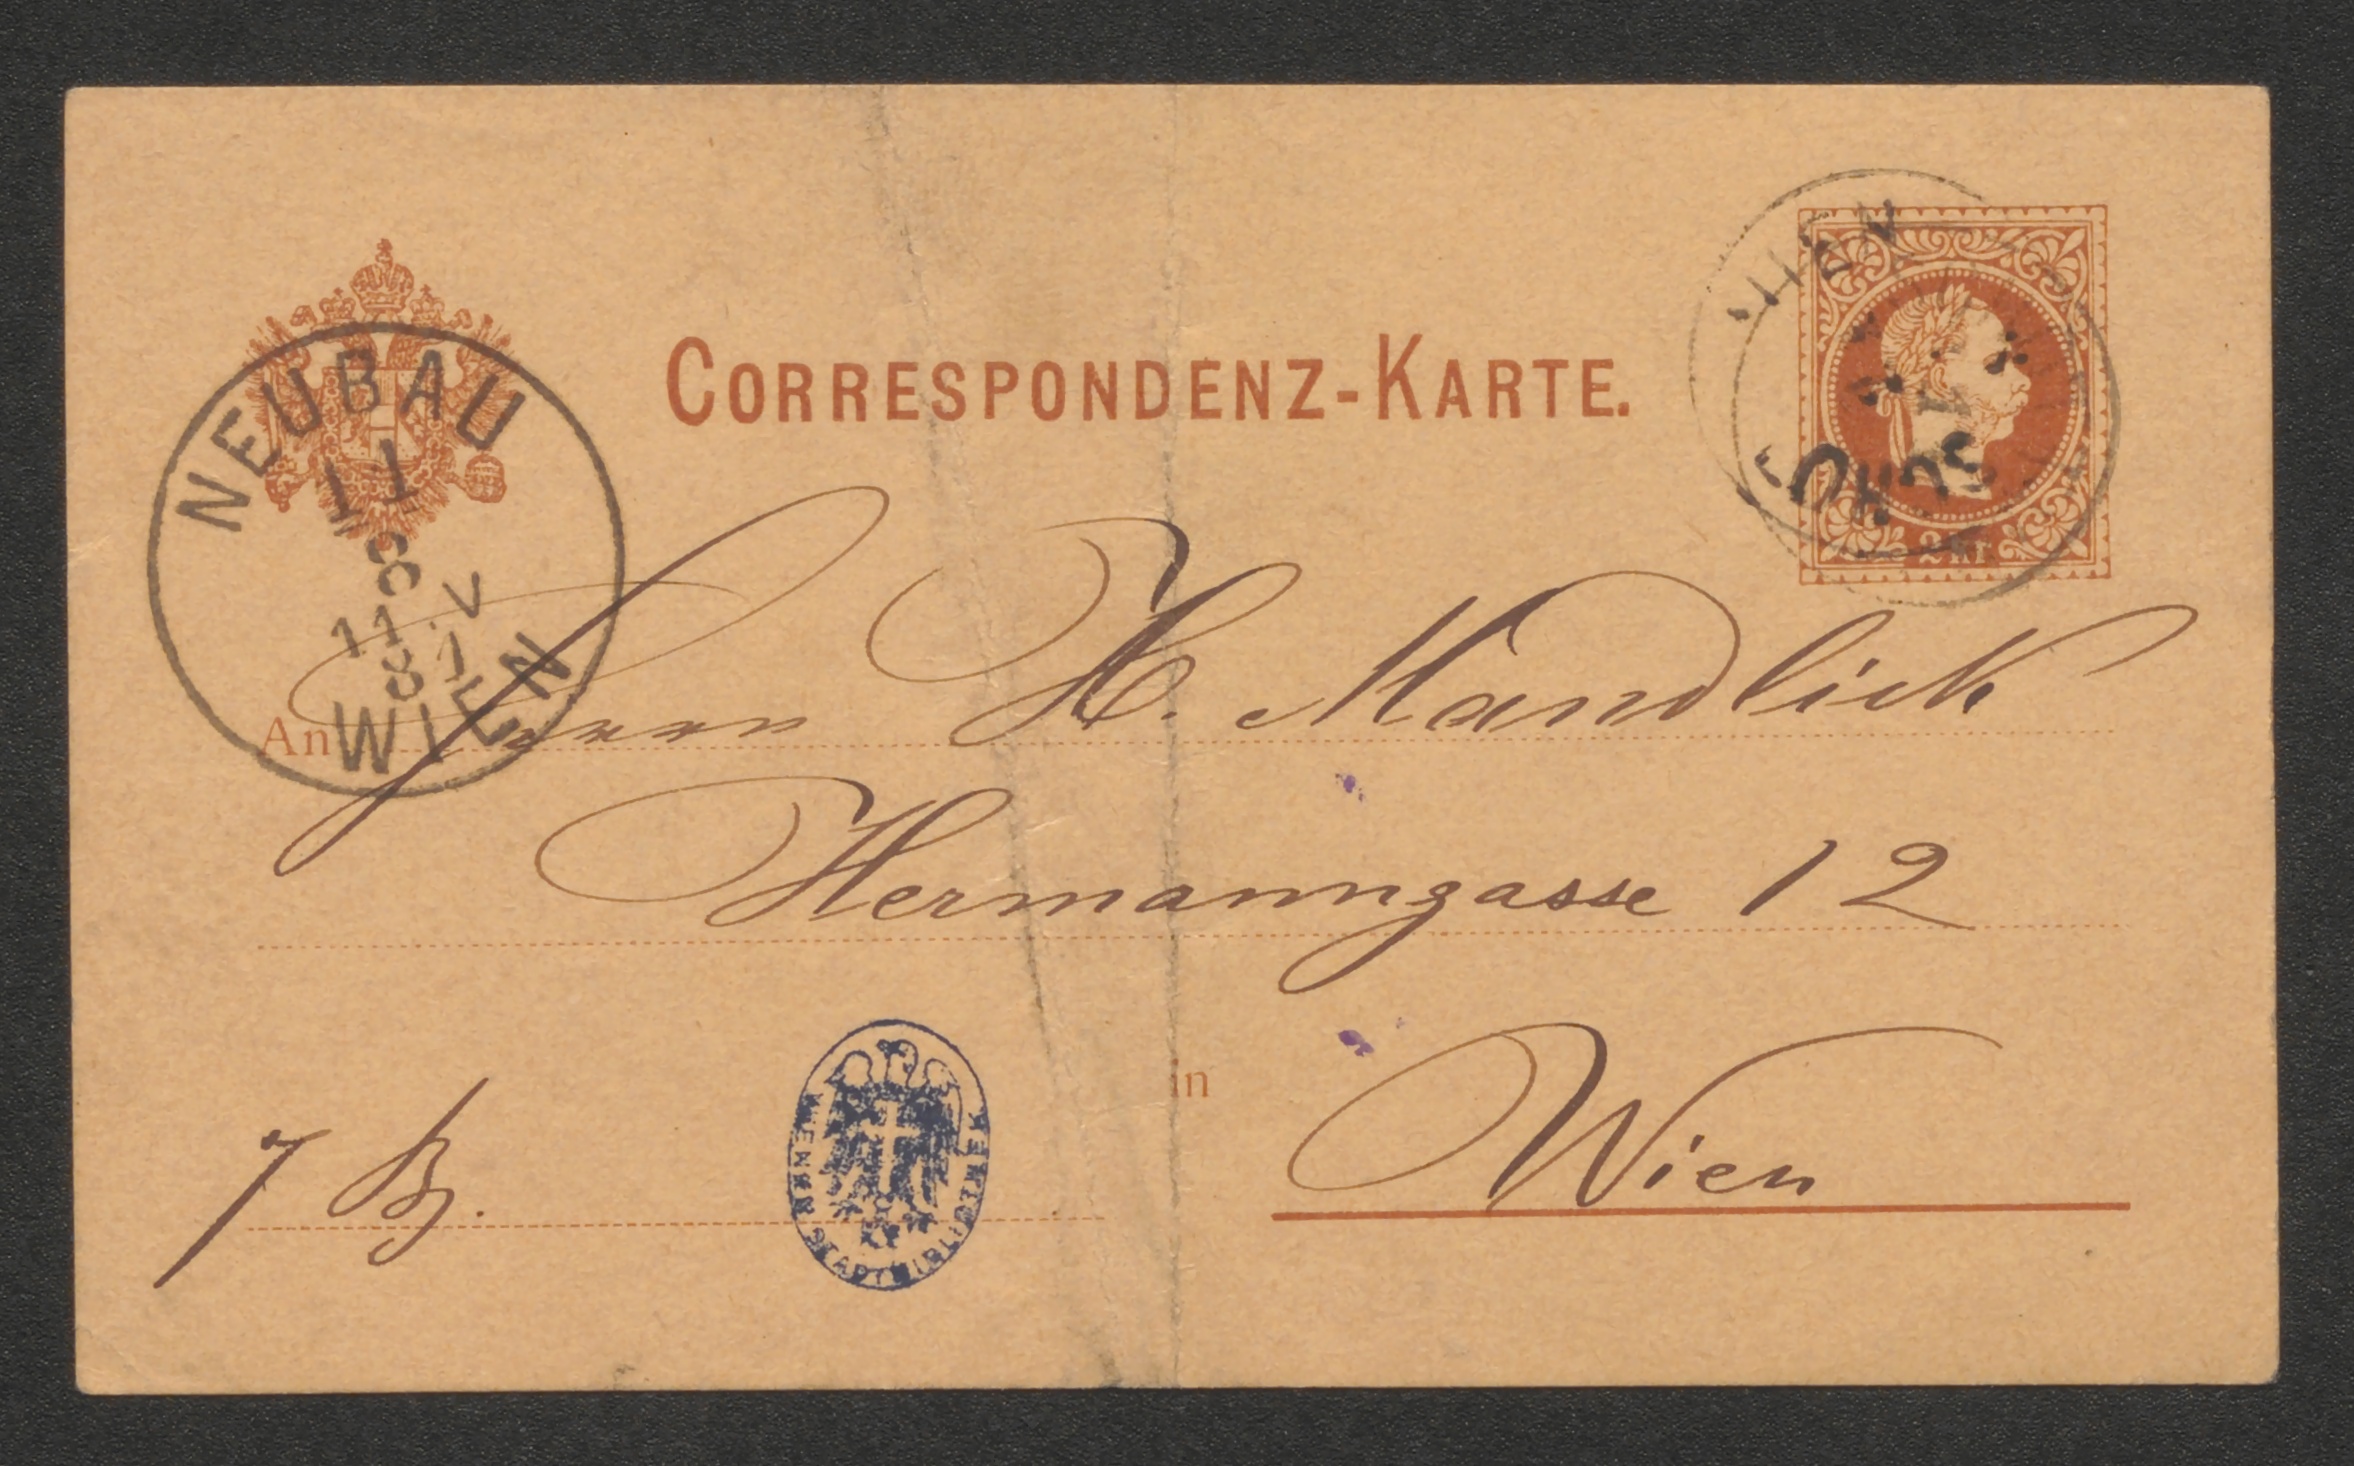 CORRESPONDENZ-KARTE.
NEUBAU
11
8 V
11
8 1
WIEN
WIEN
2 kr
An Herrn H. Mandlick
Hermanngasse 12
in Wien
7 Bz.
WIENER STADTBIBLIOTHEK